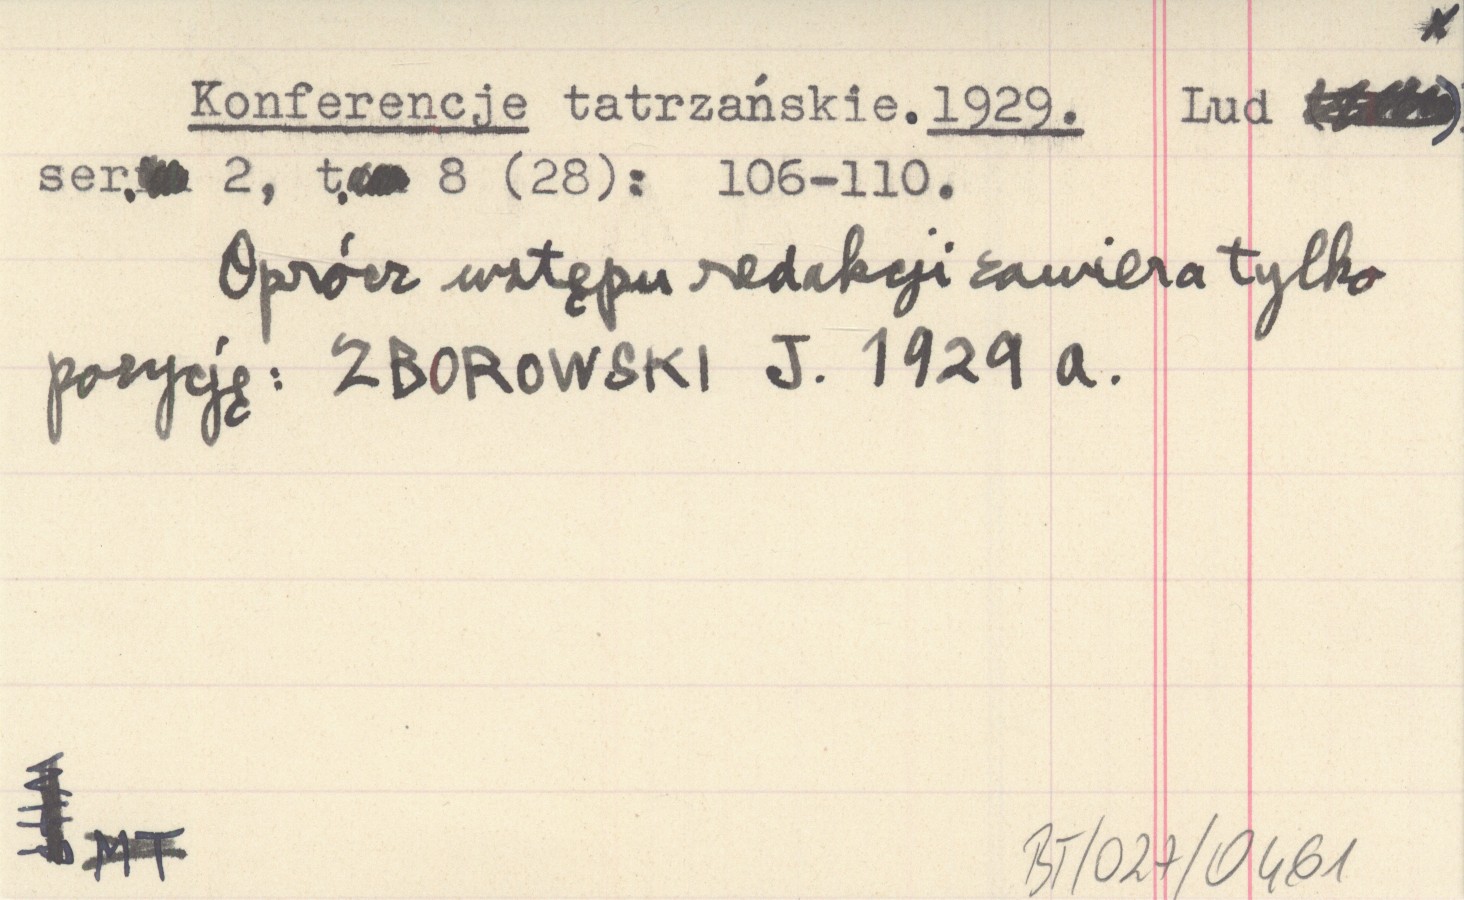 x
Konferencje tatrzańskie. 1929. Lud
ser. 2, t. 8 (28): 106-110.
Oprócz wstępu redakcji zawiera tylko
pozycję: ZBOROWSKI J. 1929 a.
MT
BT/027/0461